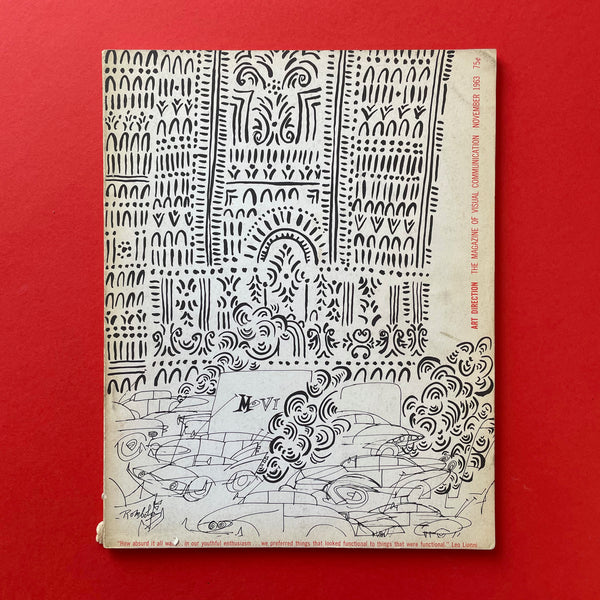 ART DIRECTION THE MAGAZINE OF VISUAL COMMUNICATION NOVEMBER 1963 75¢
MOVI
"How absurd it all was . . . in our youthful enthusiasm . . . we preferred things that looked functional to things that were functional." Leo Lionni